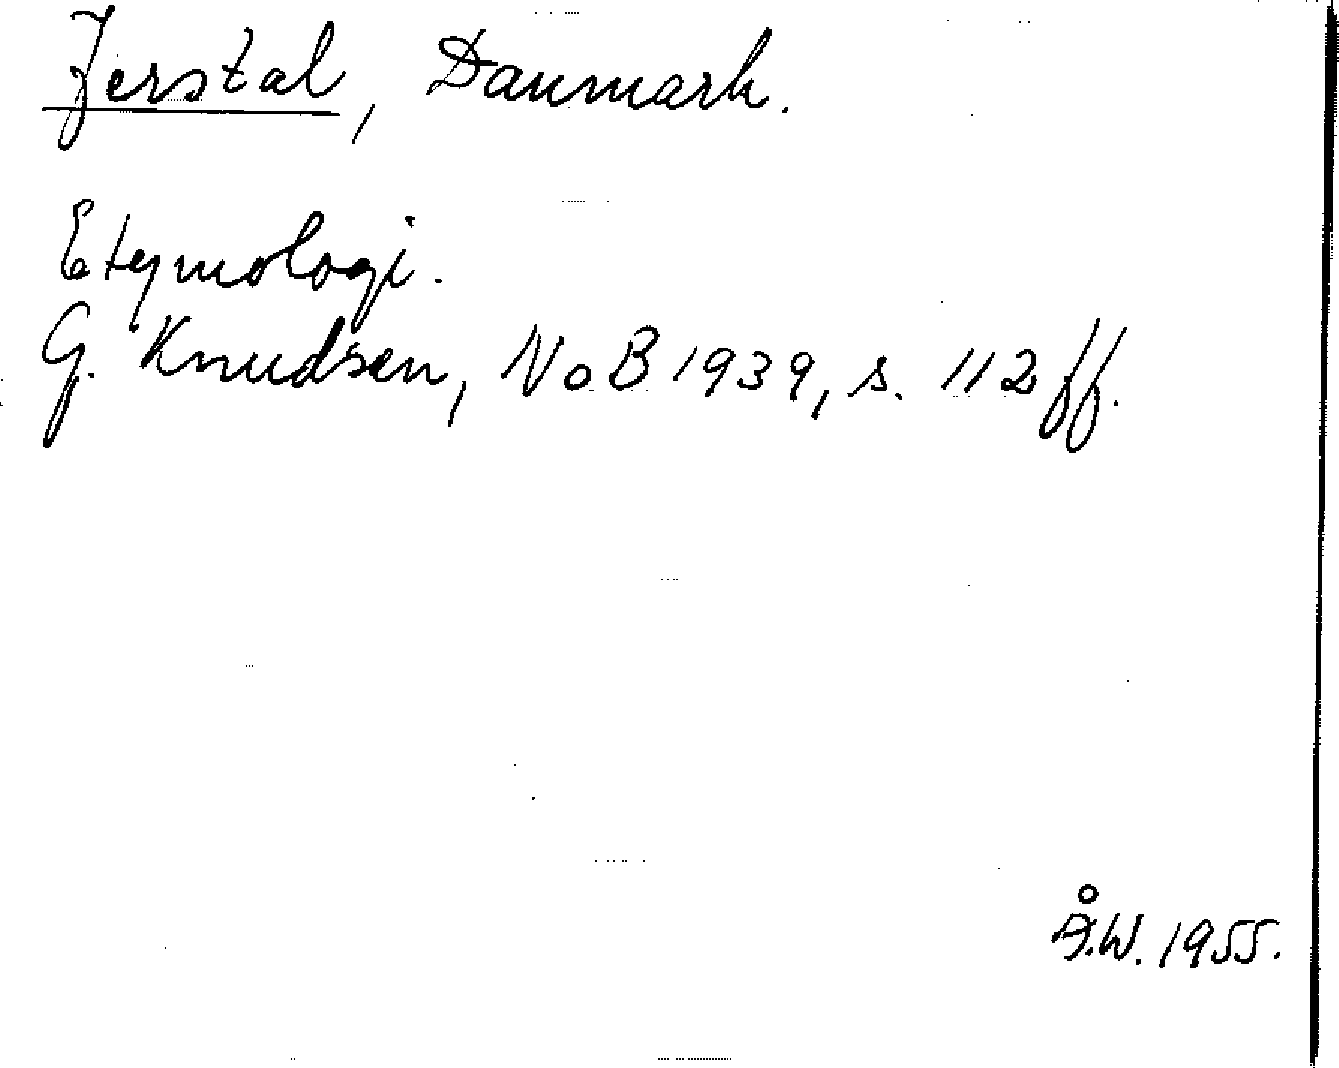 Jerstal, Danmark.
Etymologi.
G. Knudsen, NoB 1939, s. 112 ff.
Å.W. 1955.